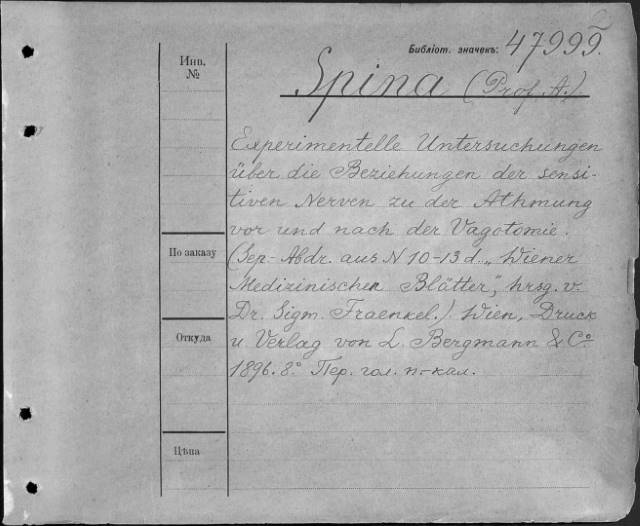 Библіот. значекъ: 47999.
Инв.
№
Spina (Prof. A.)
Experimentelle Untersuchungen
über die Beziehungen der sensi-
tiven Nerven zu der Athmung
vor und nach der Vagotomie.
По заказу
(Sep.-Abdr. aus N 10-13 d. „Wiener
Medizinischen Blätter", hrsg. v.
Dr. Sigm. Fraenkel.) Wien, Druck
Откуда
u. Verlag von L. Bergmann & Cº
1896. 8º. Пер. гол. п.-кал.
Цѣна